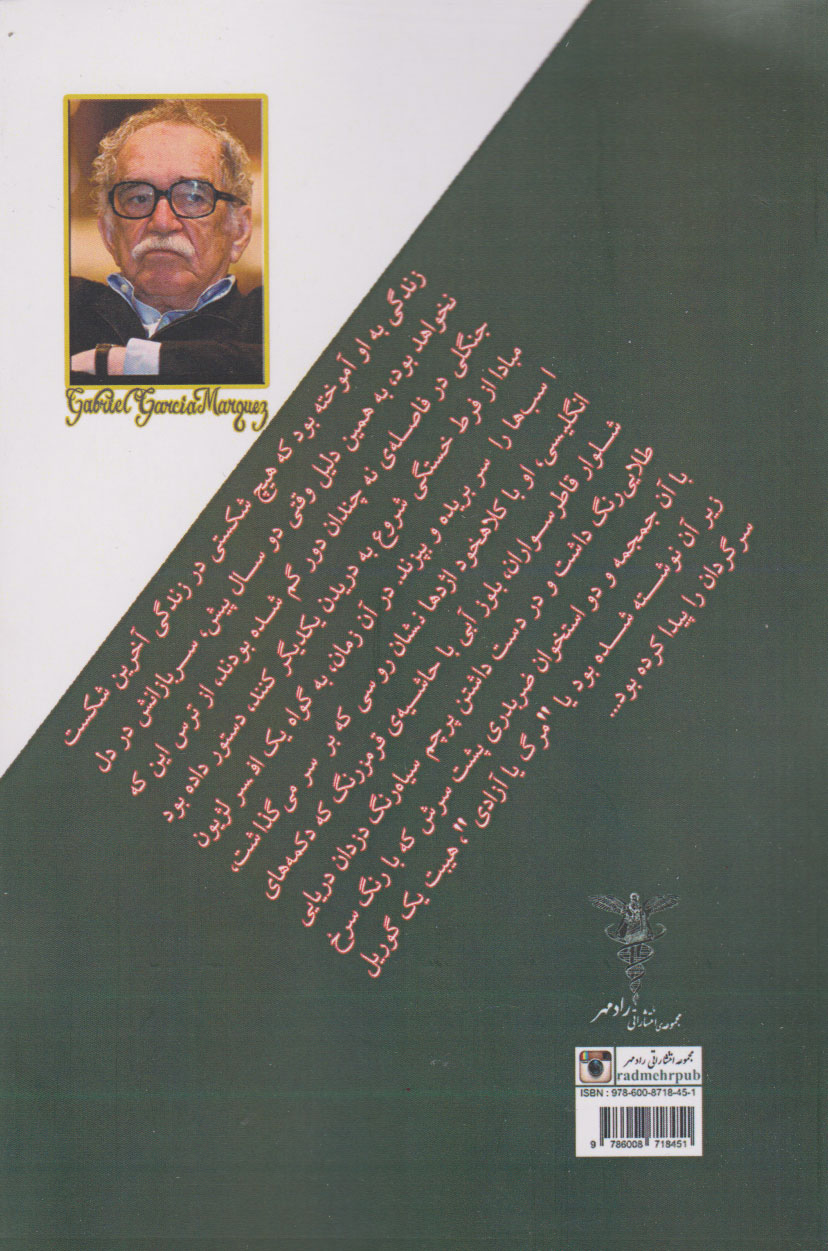 Gabriel García Marquez
زندگی به او آموخته بود که هیچ شکستی در زندگی آخرین شکست
نخواهد بود، به همین دلیل وقتی دو سال پیش، سربازانش در دل
جنگلی در فاصله‌ی نه چندان دور گم شده بودند، از ترس این که
مبادا از فرط خستگی شروع به دریدن یکدیگر کنند، دستور داده بود
اسب‌ها را سر بریده و بپزند. در آن زمان، به گواه یک افسر لژیون
انگلیسی، او با کلاهخود اژدها نشان روسی که بر سر می گذاشت،
شلوار قاطرسواران، بلوز آبی با حاشیه‌ی قرمزرنگ که دکمه‌های
طلایی‌رنگ داشت و در دست داشتن پرچم سیاه‌رنگ دزدان دریایی
با آن جمجمه و دو استخوان ضربدری پشت سرش که با رنگ سرخ
زیر آن نوشته شده بود یا "مرگ یا آزادی"، هیبت یک گوریل
سرگردان را پیدا کرده بود...
مجموعه انتشاراتی رادمهر
مجموعه انتشاراتی رادمهر
radmehrpub
ISBN : 978-600-8718-45-1
9 786008 718451